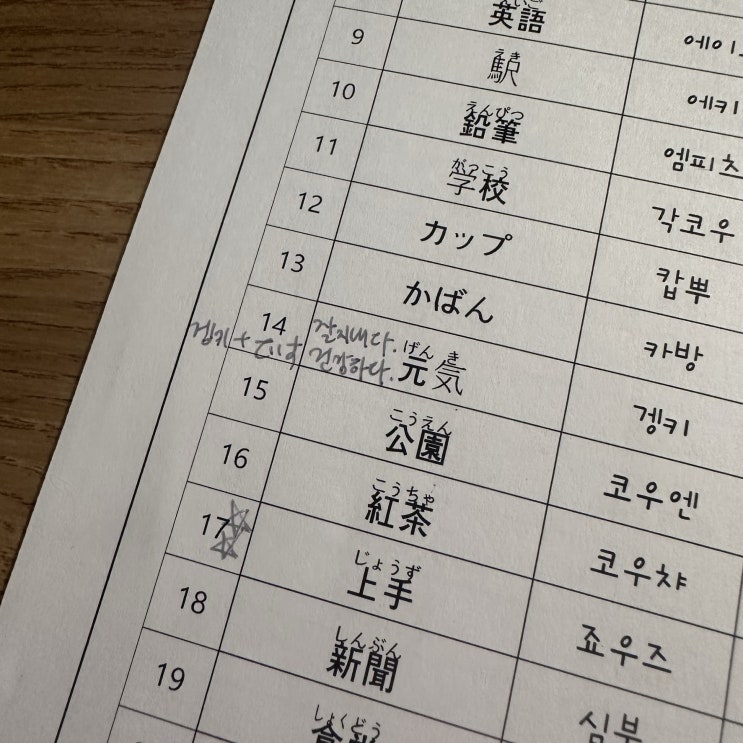 英語 에이
9 えき
駅 에키
10 えんぴつ
鉛筆 엠피츠
11 がっこう
学校 각코우
12 カップ 캅뿌
13 かばん 카방
14 げんき
元気 겡키
잘지내다.
겡키 + です 건강하다.
15 こうえん
公園 코우엔
16 こうちゃ
紅茶 코우챠
17 じょうず
上手 죠우즈
18 しんぶん
新聞 심부
19 しょくどう